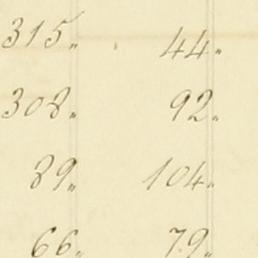 315„ 44„
308„ 92„
89„ 104„
66„ 79„